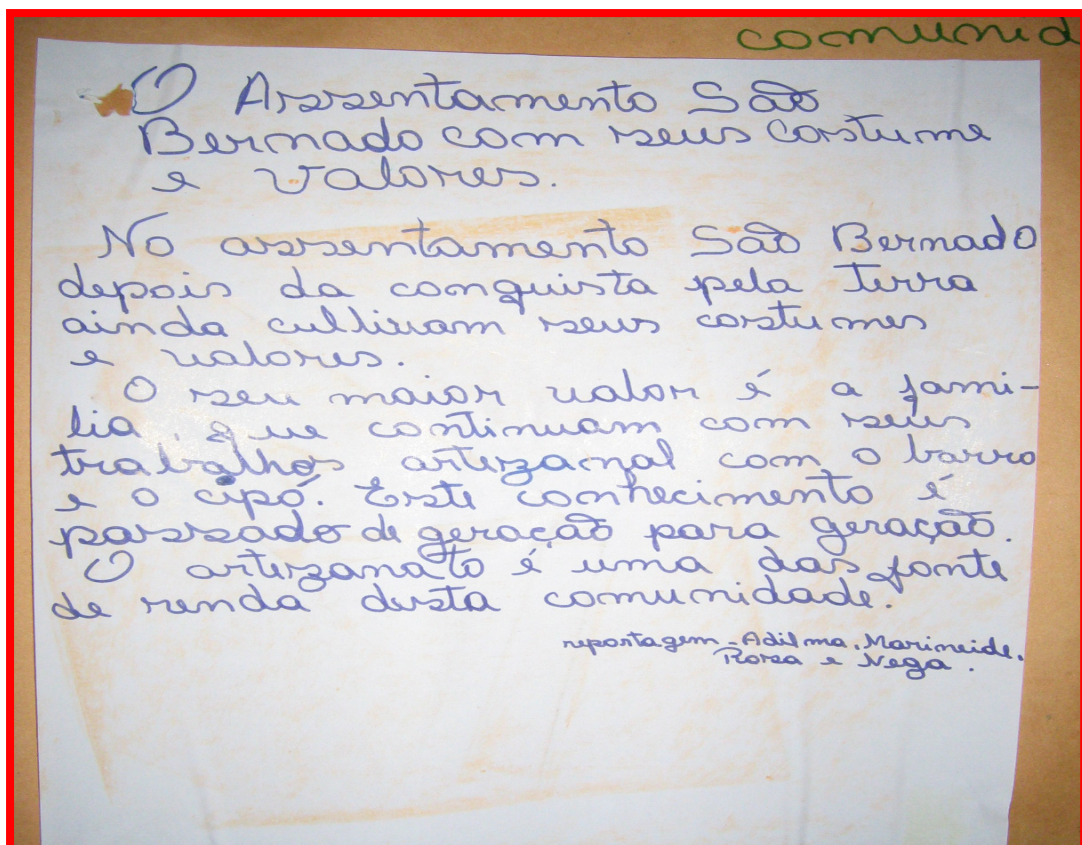 comunid
O Assentamento São
Bernado com seus costume
e valores.
No assentamento São Bernado
depois da conquista pela terra
ainda cultivam seus costumes
e valores.
O seu maior valor é a fami-
lia, que continuam com seus
trabalhos artezanal com o barro
e o cipó. Este conhecimento é
passado de geração para geração.
O artezanato é uma das fonte
de renda desta comunidade.
reportagem - Adilma, Marineide,
Rosa e Nega.